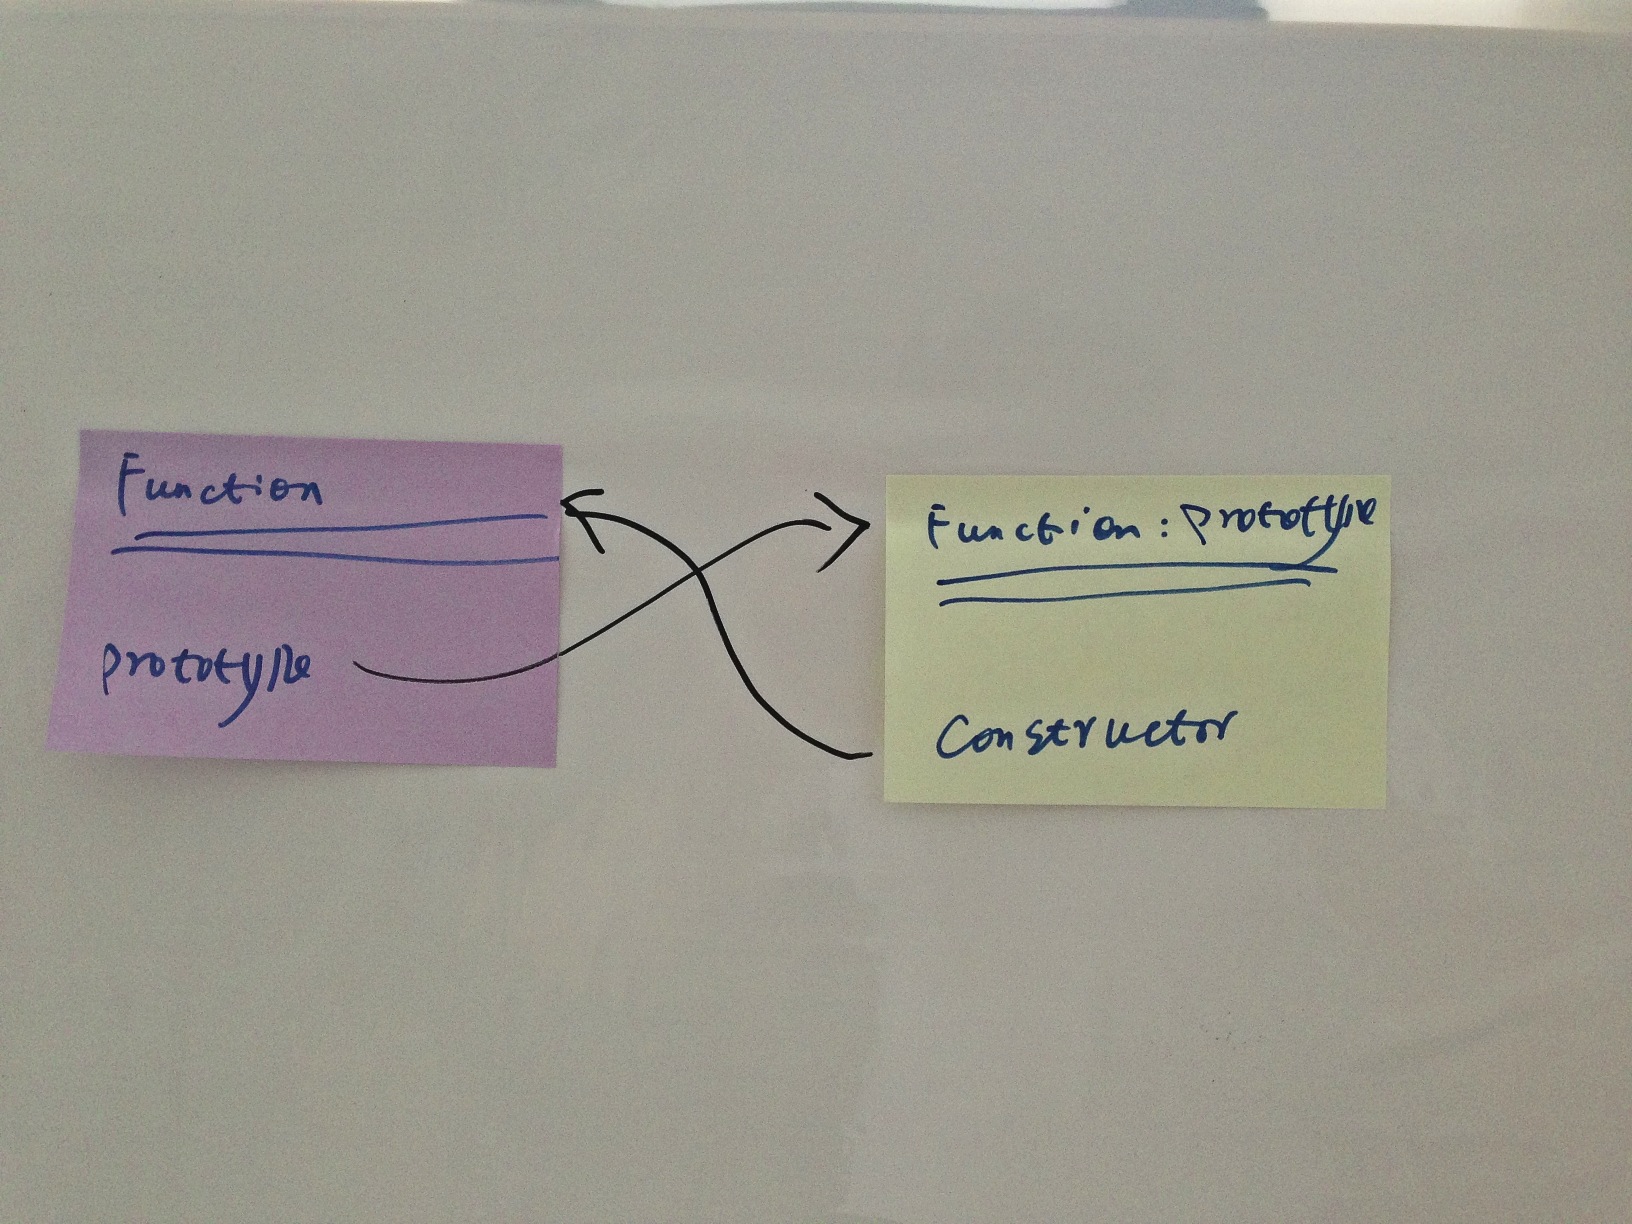 Function
prototype
Function : prototype
Constructor